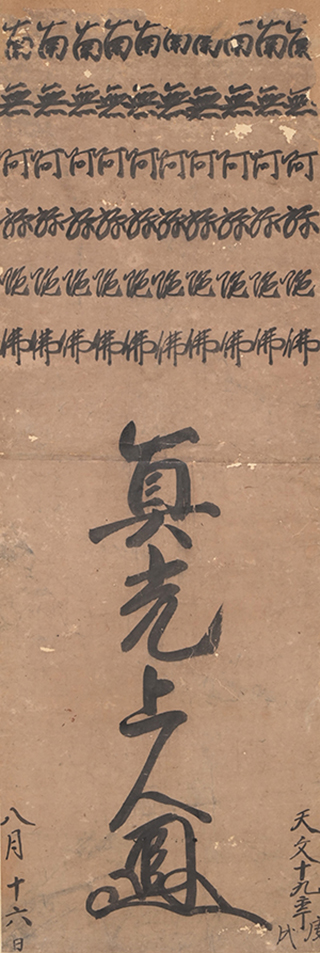 南無阿弥陀佛
南無阿弥陀佛
南無阿弥陀佛
南無阿弥陀佛
南無阿弥陀佛
南無阿弥陀佛
南無阿弥陀佛
南無阿弥陀佛
南無阿弥陀佛
南無阿弥陀佛
天文十九年庚戌
眞光上人
八月十六日